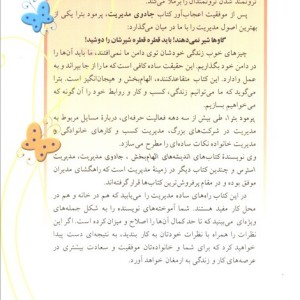 ثروتمند شدن ثروتمندان را برملا می‌کند.
پس از موفقیت اعجاب‌آور کتاب جادوی مدیریت، پرمود بترا یکی از
بهترین اصول مدیریت را با ما در میان می‌گذارد:
«گاوها شیر نمی‌دهند! باید قطره قطره شیرشان را دوشید!
چیزهای خوب زندگی خودشان توی دامن ما نمی‌افتند، ما باید آن‌ها را
در دامن خود بگذاریم. این حقیقت ساده کافی است که ما را از جا بپراند و به
عمل وادارد. این کتاب متقاعدکننده، الهام‌بخش و هیجان‌انگیز است. با
می‌گوید که ما می‌توانیم زندگی، کسب و کار و روابط خود را آن گونه که
می‌خواهیم بسازیم.
پرمود بترا، طی بیش از سه دهه فعالیت حرفه‌ای، دربارهٔ مسایل مربوط به
مدیریت در شرکت‌های بزرگ، مدیریت کسب و کارهای خانوادگی و
مدیریت خانواده نکات ساده‌ای را مطرح می‌سازد.
وی نویسندهٔ کتاب‌های اندیشه‌های الهام‌بخش، جادوی مدیریت، مدیریت
استرس و چندین کتاب دیگر در زمینهٔ مدیریت است که راهگشای مدیران
موفق بوده و در مقام پرفروش‌ترین کتاب‌ها قرار گرفته‌اند.
در این کتاب راه‌های ساده مدیریت را می‌یابید که هم در خانه و هم در
محل کار مفید هستند. شما آموخته‌های نویسنده را به شکل جمله‌های
ویژه‌ای می‌بینید که تا حد کمال آن‌ها را اصلاح و میزان کرده است. اگر این
نظرات را همراه با نظرات خودتان به کار بندید، به نتیجه‌ای دست پیدا
خواهید کرد که برای شما و خانواده‌تان موفقیت و سعادت بیشتری در
عرصه‌های کار و زندگی به ارمغان خواهد آورد.